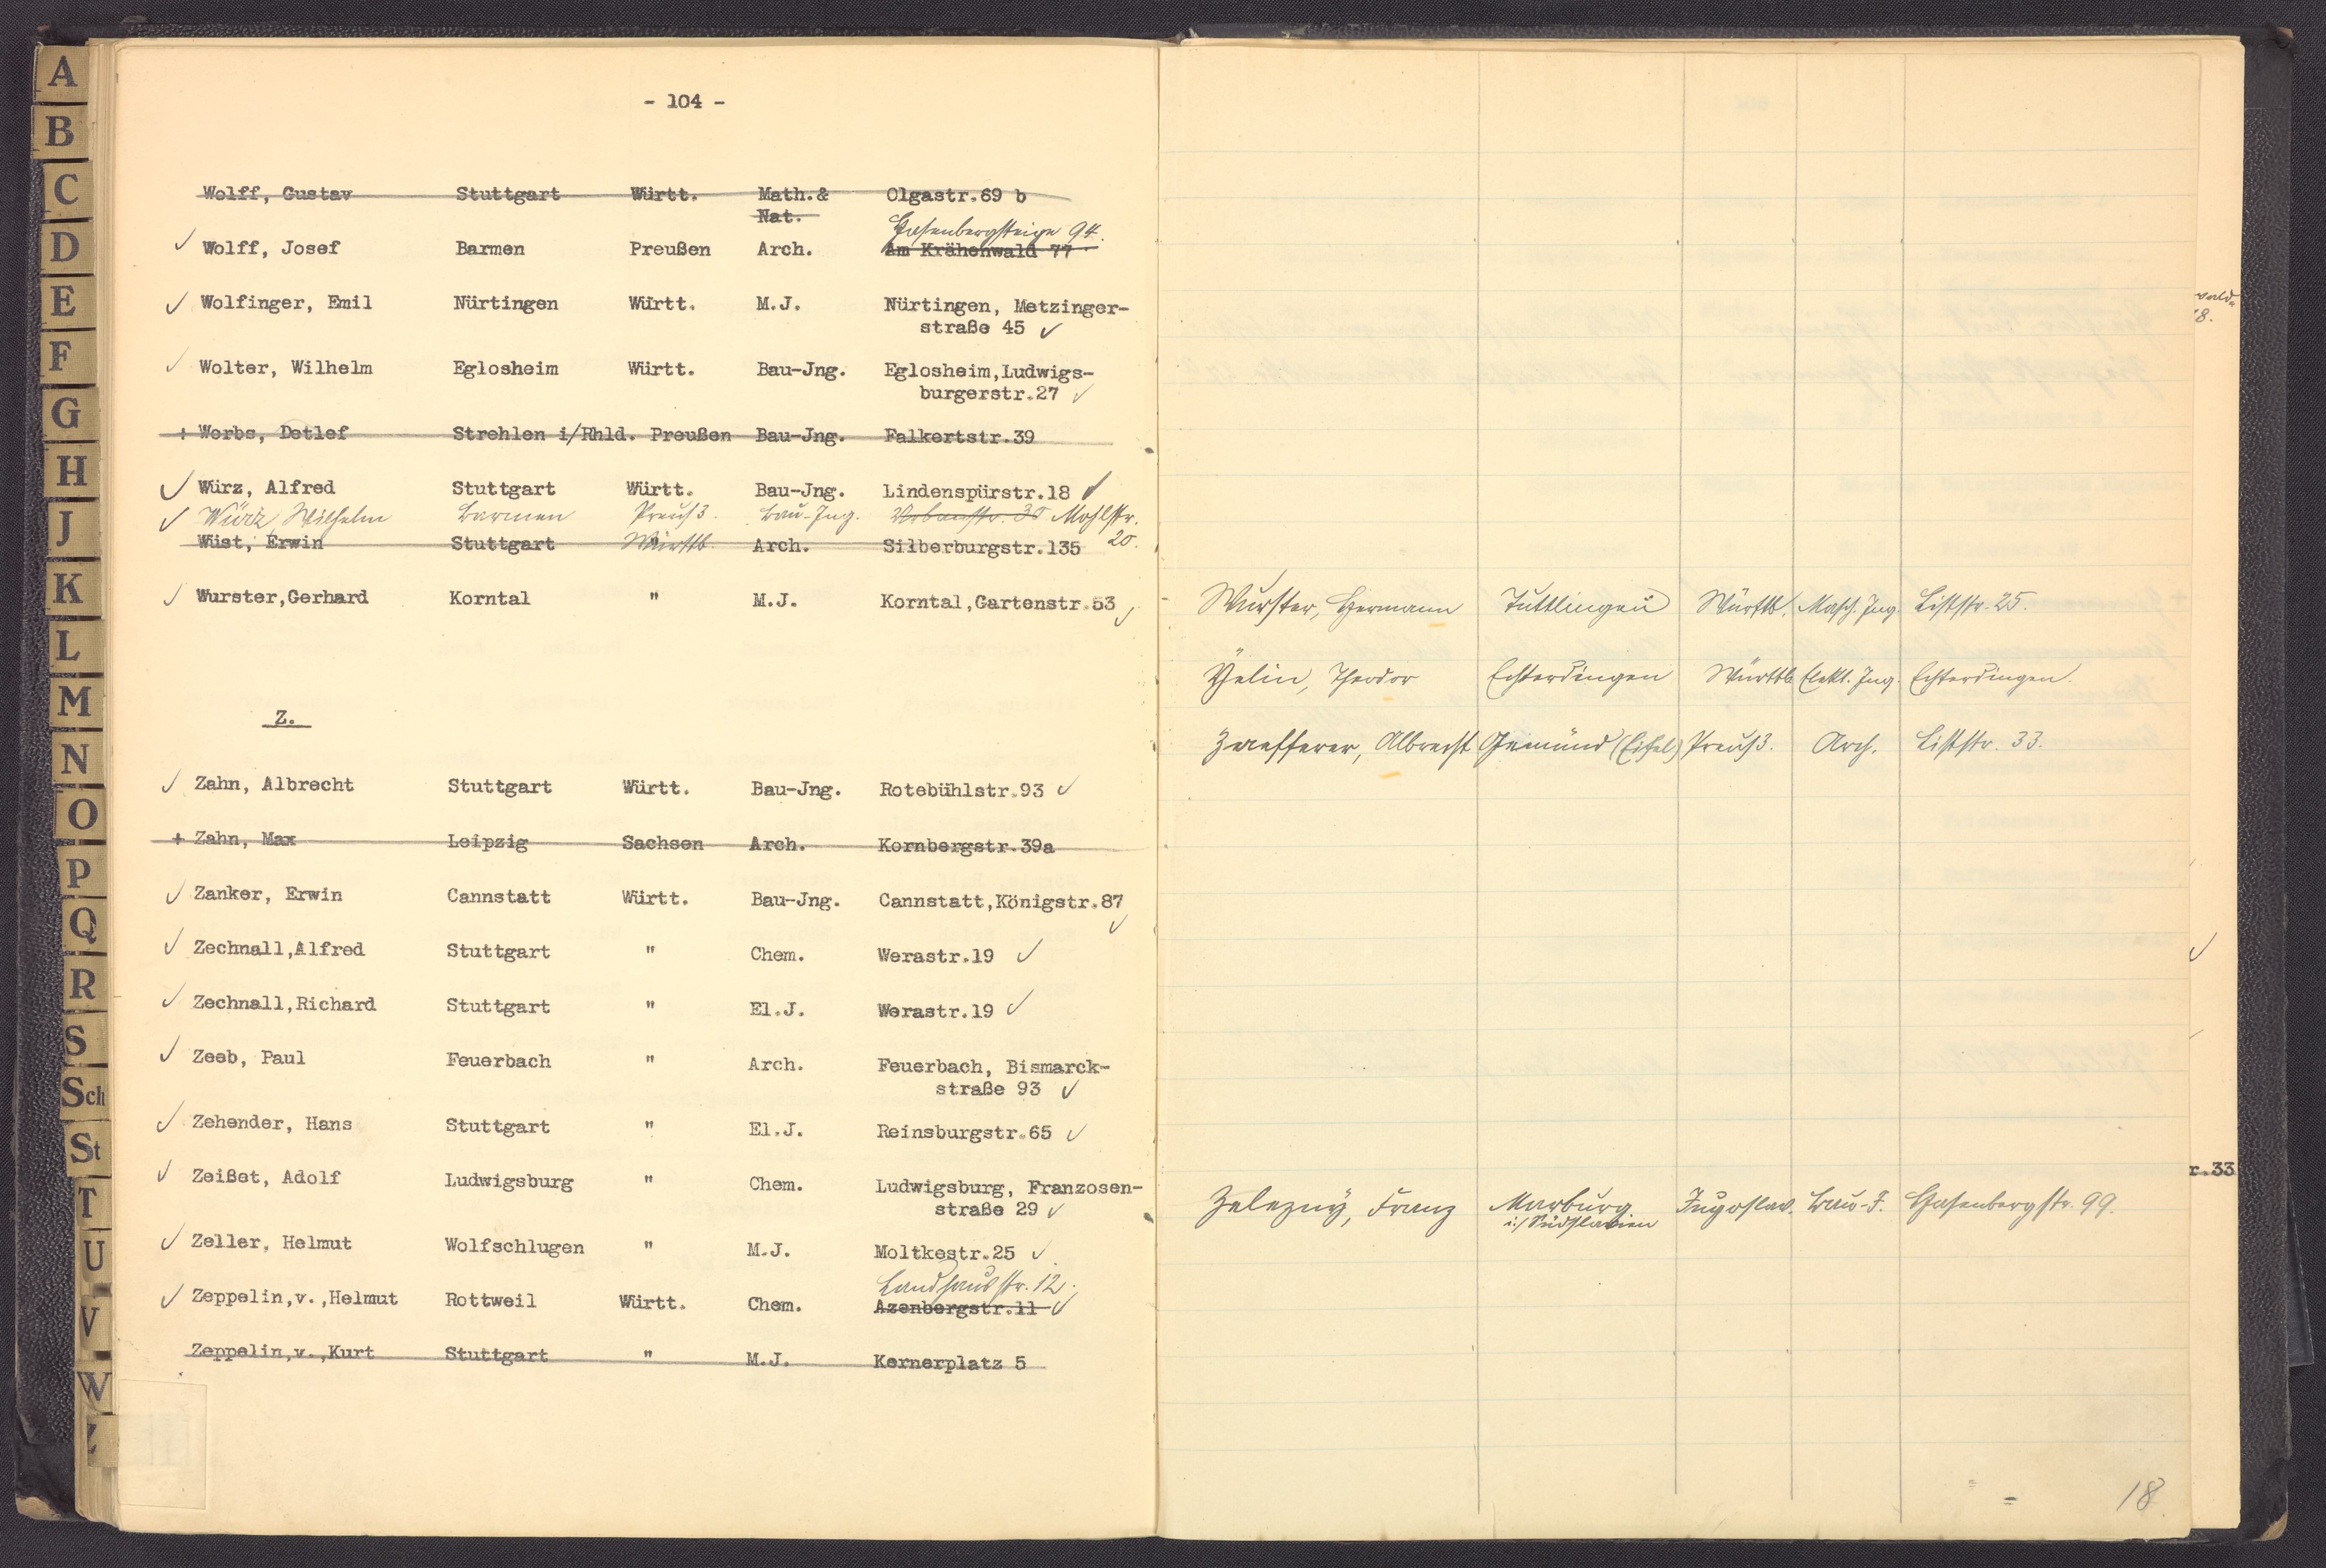 - 104 -
Wolff, Gustav Stuttgart Württ. Math.& Olgastr.69 b
Nat.
Hasenbergsteige 94.
Wolff, Josef Barmen Preußen Arch. Am Krähenwald 77
Wolfinger, Emil Nürtingen Württ. M.J. Nürtingen, Metzinger-
straße 45
Wolter, Wilhelm Eglosheim Württ. Bau-Jng. Eglosheim,Ludwigs-
burgerstr.27
+ Worbs, Detlef Strehlen i/Rhld. Preußen Bau-Jng. Falkertstr.39
Würz, Alfred Stuttgart Württ. Bau-Jng. Lindenspürstr.18
Würz, Wilhelm Barmen Preuß. Bau-Ing. Urbanstr. 35 Mohlstr.
20.
Wüst, Erwin Stuttgart Württb. Arch. Silberburgstr.135
Wurster,Gerhard Korntal " M.J. Korntal,Gartenstr.53
Z.
Zahn, Albrecht Stuttgart Württ. Bau-Jng. Rotebühlstr.93
+ Zahn, Max Leipzig Sachsen Arch. Kornbergstr.39a
Zanker, Erwin Cannstatt Württ. Bau-Jng. Cannstatt,Königstr.87
Zechnall,Alfred Stuttgart " Chem. Werastr.19
Zechnall,Richard Stuttgart " El.J. Werastr.19
Zeeb, Paul Feuerbach " Arch. Feuerbach, Bismarck-
straße 93
Zehender, Hans Stuttgart " El.J. Reinsburgstr.65
Zeißet, Adolf Ludwigsburg " Chem. Ludwigsburg, Franzosen-
straße 29
Zeller, Helmut Wolfschlugen " M.J. Moltkestr.25
Landhausstr. 12.
Zeppelin,v.,Helmut Rottweil Württ. Chem. Azenbergstr.11
Zeppelin,v.,Kurt Stuttgart " M.J. Kernerplatz 5
Wurster, Hermann Tuttlingen Württb. Masch. Ing. Liststr. 25.
Yelin, Theodor Echterdingen Württb. Elekt. Ing. Echterdingen.
Zaefferer, Albrecht Gemünd (Eifel) Preuß. Arch. Liststr. 33.
Zelezny, Franz Marburg Jugoslav. Bau-J. Hasenbergstr. 99.
i./Südslavien
18
8.
r.33
A
B
C
D
E
F
G
H
J
K
L
M
N
O
P
Q
R
S
Sch
St
T
U
V
W
Z